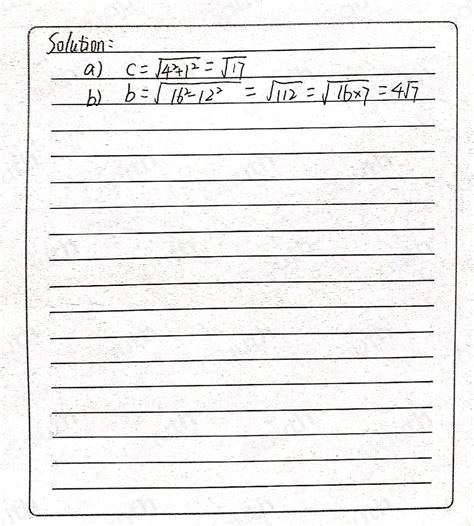 Solution:
a) c = √4²+1² = √17
b) b = √16²-12² = √112 = √16×7 = 4√7